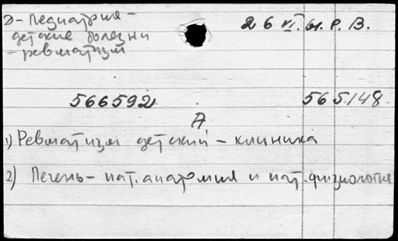 D – Педиатрия –
26 VI. М. Р. В.
детские болезни
– ревматизм
566592 565148
А
1) Ревматизм детский – клиника
2) Печень – пат. анатомия и пат. физиология